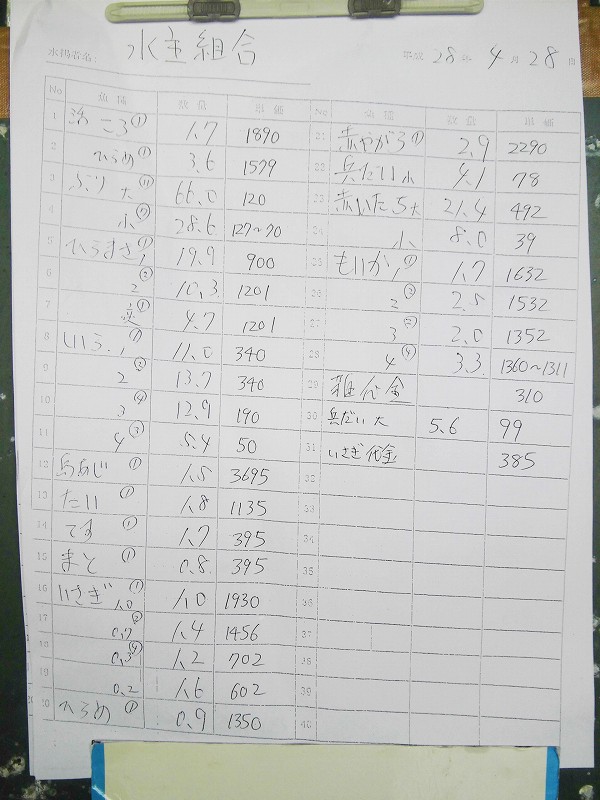 水揚者名: 水主組合 平成 28年 4月 28日
No 魚種 数量 単価 No 魚種 数量 単価
1 活 ころ① 1.7 1890
2 ひらめ① 3.6 1579
3 ぶり 大⑪ 66.0 120
4 小⑦ 28.6 127~70
5 ひらまさ1① 19.9 900
6 2② 10.3 1201
7 ① 4.7 1201
8 1① 11.0 340
9 2② 13.7 340
10 3④ 12.9 190
11 4③ 5.4 50
12 島あじ① 1.5 3695
13 たい① 1.8 1135
14 てす① 1.7 395
15 まと① 0.8 395
16 いさぎ 1.0① 1.0 1930
17 0.7② 1.4 1456
18 0.3④ 1.2 702
19 0.2 1.6 602
20 ひらめ① 0.9 1350
21 赤やがら① 2.9 2290
22 兵だい小 4.1 78
23 赤いたち大 21.4 492
24 小 8.0 39
25 もいか1① 1.7 1632
26 2③ 2.5 1532
27 3 2.0 1352
28 4④ 3.3 1360~1311
29 雑代金 310
30 兵だい大 5.6 99
31 いさぎ代金 385
32
33
34
35
36
37
38
39
40